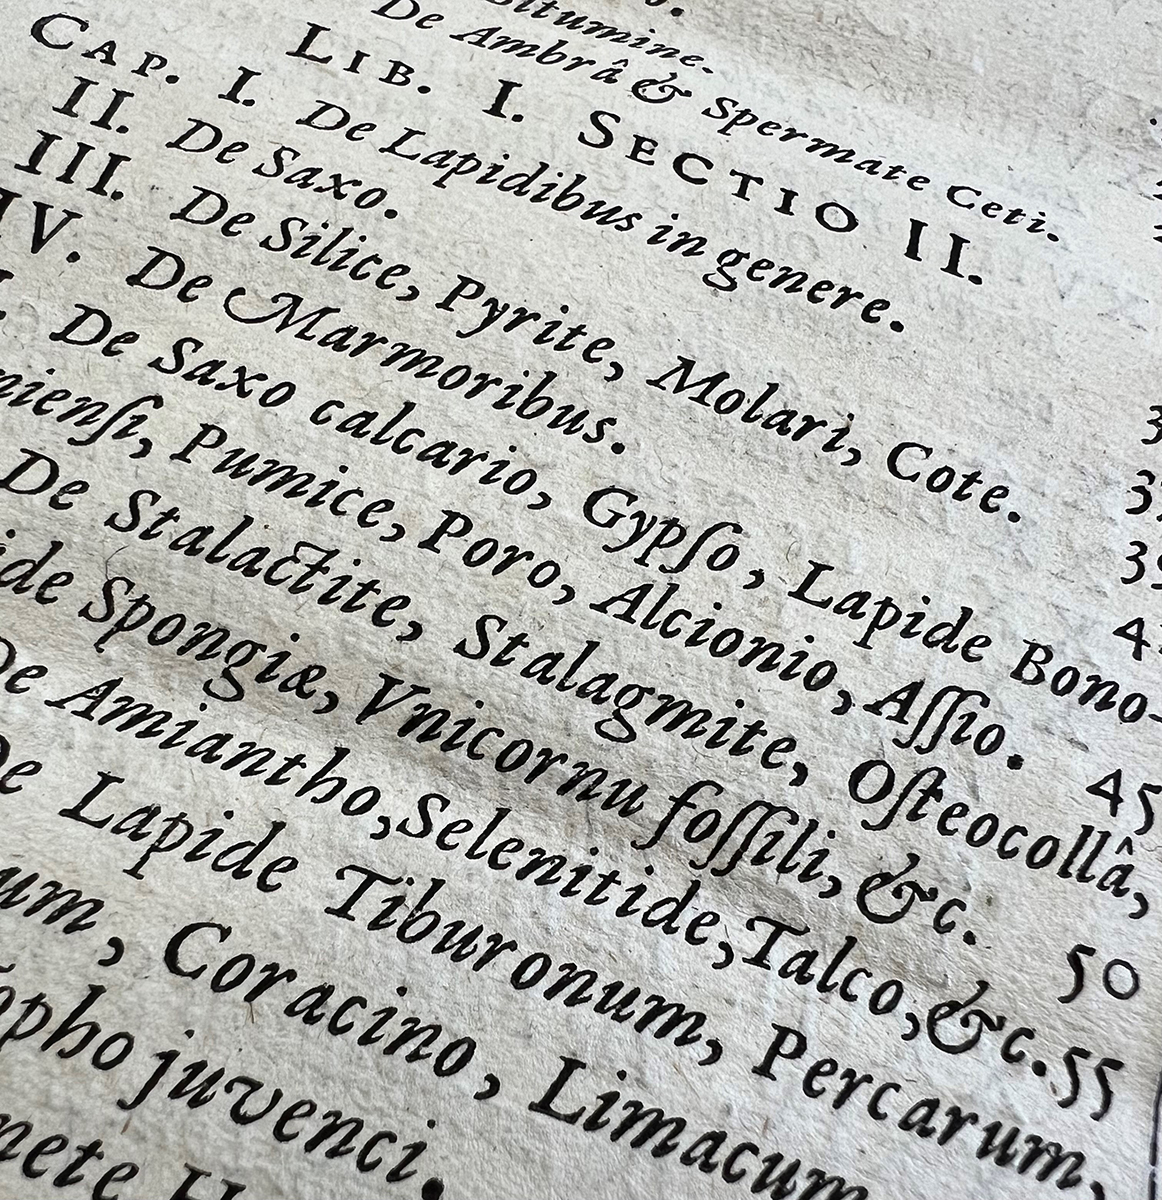 Bitumine.
De Ambrâ & Spermate Ceti.
LIB. I. SECTIO II.
CAP. I. De Lapidibus in genere.
II. De Saxo.
III. De Silice, Pyrite, Molari, Cote.
IV. De Marmoribus.
De Saxo calcario, Gypſo, Lapide Bono-
nienſi, Pumice, Poro, Alcionio, Aſſio. 45
De Stalactite, Stalagmite, Oſteocollâ,
ide Spongiæ, Vnicornu foſſili, &c. 50
De Amiantho, Selenitide, Talco, &c. 55
De Lapide Tiburonum, Percarum,
um, Coracino, Limacum
opho juvenci.